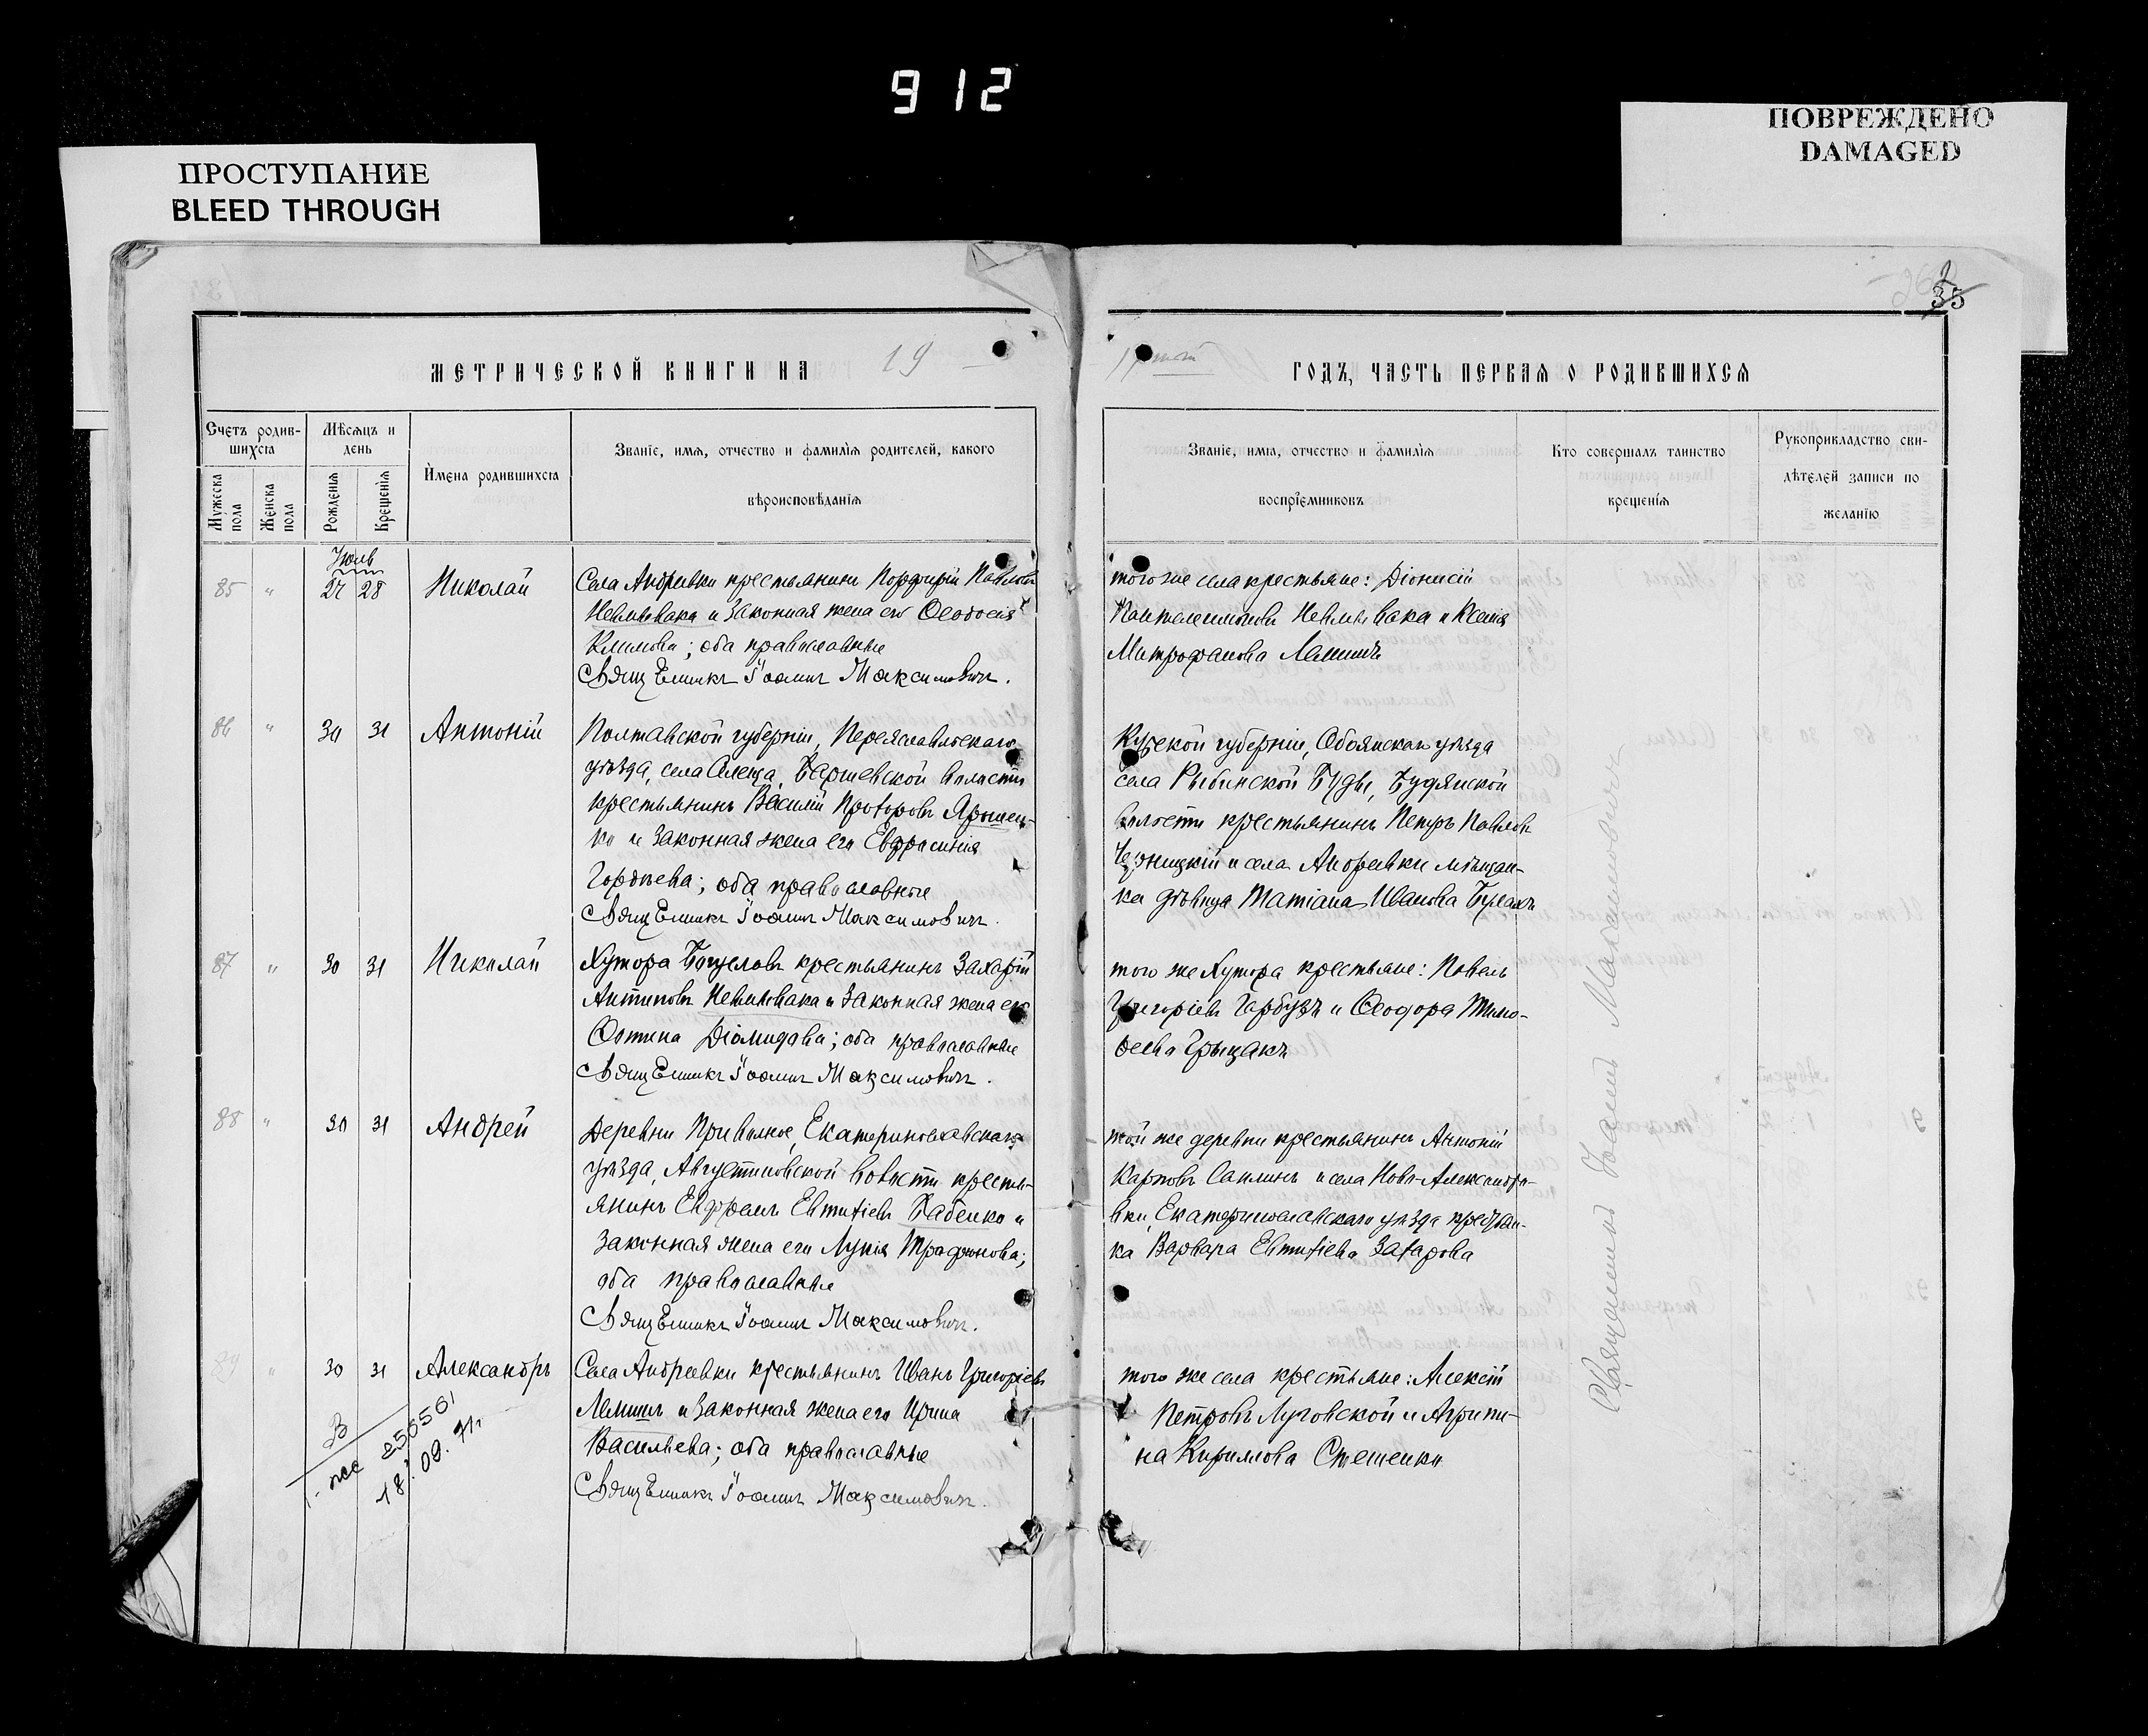 912
ПРОСТУПАНИЕ
BLEED THROUGH
ПОВРЕЖДЕНО
DAMAGED
35
МЕТРИЧЕСКОЙ КНИГИ НА 19
ГОДЪ, ЧАСТЬ ПЕРВАЯ О РОДИВШИХСЯ
Счетъ родив-
шихся
Мужеска пола
Женска пола
Мѣсяцъ и
день
Рожденія
Крещенія
Имена родившихся
Званіе, имя, отчество и фамилія родителей, какого
вѣроисповѣданія
Званіе, имя, отчество и фамилія
воспріемниковъ
Кто совершалъ таинство
крещенія
Рукоприкладство сви-
дѣтелей записи по
желанію
Июль
85 " 27 28 Николай
Села Андреевки крестьянинъ Порфирій Павловъ
Невинвака и законная жена его Ѳеодосія
Климова; оба православные
Священникъ Іоаннъ Максимовичъ.
того же села крестьяне: Діонисій
Пантелеимоновъ Невинвака и Ксенія
Митрофанова Лемишъ
86 " 30 31 Антоній
Полтавской губерніи, Переяславльскаго
уѣзда, села Волости
крестьянинъ Василій Прохоровъ Ярошен-
ко и законная жена его Евфросинія
Гордѣева; оба православные
Священникъ Іоаннъ Максимовичъ.
Курской губерніи, Обоянскаго уѣзда
села Рыбинской Буды, Будянской
волости крестьянинъ Петръ Павловъ
и села Андреевки мѣщан-
ка дѣвица Татіана Иванова
87 " 30 31 Николай
Хутора крестьянинъ Захарій
Антиповъ Невинвака и законная жена его
Ѳотина Діомидова; оба православные
Священникъ Іоаннъ Максимовичъ.
того же Хутора крестьяне: Павелъ
Григоріевъ Гарбузъ и Ѳеодора Тимо-
ѳеева Грыцакъ
88 " 30 31 Андрей
Деревни Привольное, Екатеринославскаго
уѣзда, Августиновской волости кресть-
янинъ Евфремъ Евтихіевъ Бабенко и
законная жена его Лукія Трофимова;
оба православные
Священникъ Іоаннъ Максимовичъ.
той же деревни крестьянинъ Антоній
Карповъ Саплинъ и села Ново-Александро-
вки, Екатеринославскаго уѣзда крестьян-
ка Варвара Евтихіева Захарова
89 " 30 31 Александръ
Села Андреевки крестьянинъ Иванъ Григоріевъ
Лемишъ и законная жена его Ирина
Васильева; оба православные
Священникъ Іоаннъ Максимовичъ.
того же села крестьяне: Алексій
Петровъ Луговской и Агрипи-
на Кириллова Стешенко
256561
18.09.71г
Священникъ Іоаннъ Максимовичъ